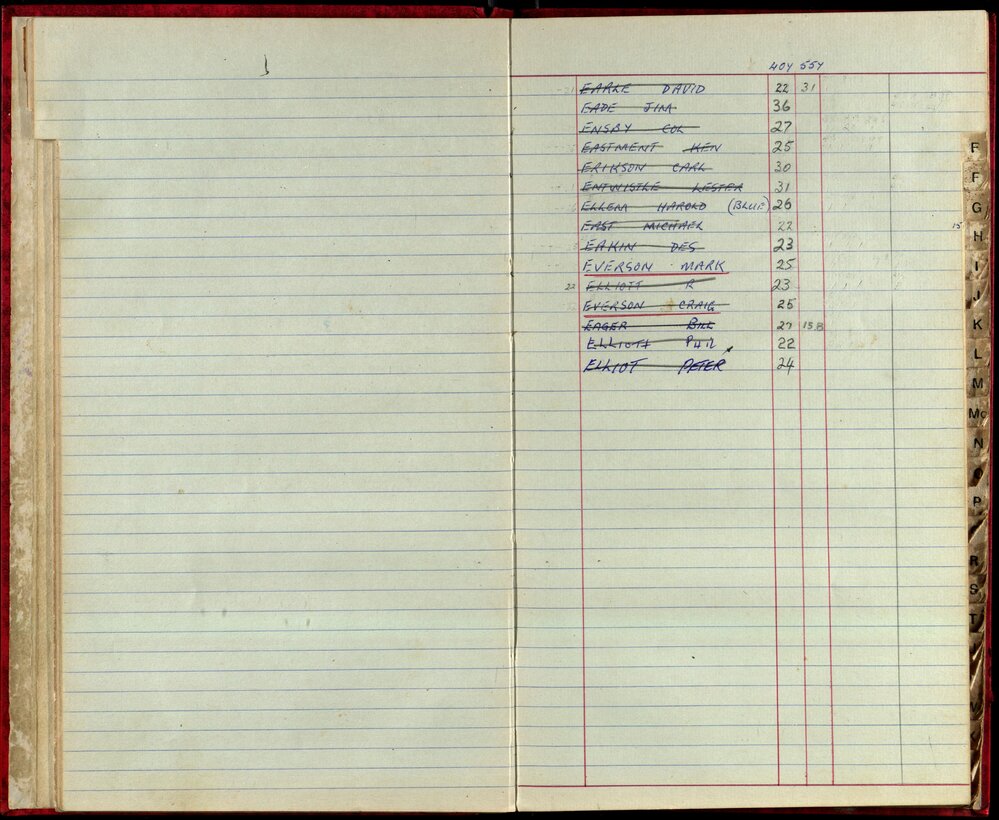 40Y 55Y
EARLE DAVID 22 31
EADE JIM 36
ENSBY COL 27
EASTMENT KEN 25
ERIKSON CARL 30
ENTWISTLE LESTER 31
ELLEM HAROLD (BLUE) 26
EAST MICHAEL 22
EAKIN DES 23
EVERSON MARK 25
22 ELLIOTT R 23
EVERSON CRAIG 25
EAGER BILL 27 15.B
ELLIOTT PHIL 22
ELLIOT PETER 24
F
F
G
15 H
I
J
K
L
M
Mc
N
O
P
R
S
T
W